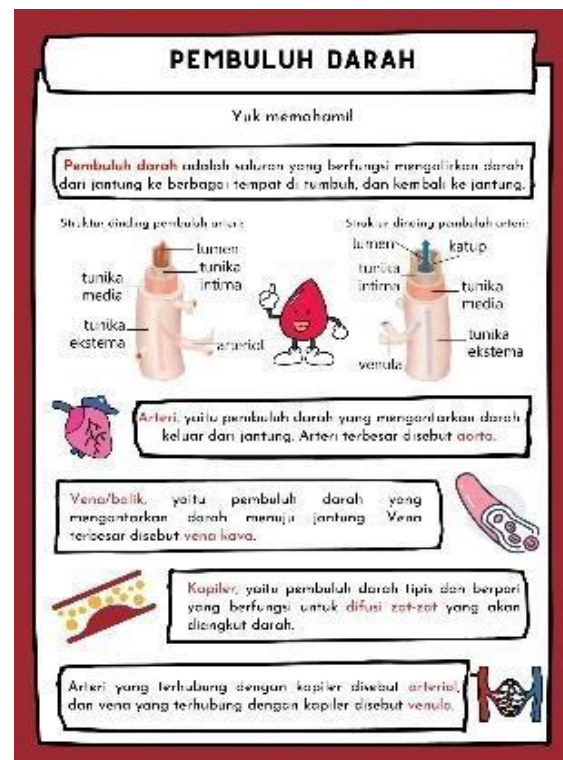 PEMBULUH DARAH
Yuk memahami!
Pembuluh darah adalah saluran yang berfungsi mengalirkan darah
dari jantung ke berbagai tempat di tumbuh, dan kembali ke jantung.
Struktur dinding pembuluh arteri:
lumen
tunika
intima
tunika
media
tunika
eksterna
arteriol
Struktur dinding pembuluh arteri:
lumen
katup
tunika
intima
tunika
media
tunika
eksterna
venula
Arteri, yaitu pembuluh darah yang mengantarkan darah
keluar dari jantung. Arteri terbesar disebut aorta.
Vena/balik, yaitu pembuluh darah yang
mengantarkan darah menuju jantung Vena
terbesar disebut vena kava.
Kapiler, yaitu pembuluh darah tipis dan berpori
yang berfungsi untuk difusi zat-zat yang akan
diangkut darah.
Arteri yang terhubung dengan kapiler disebut arteriol,
dan vena yang terhubung dengan kapiler disebut venula.